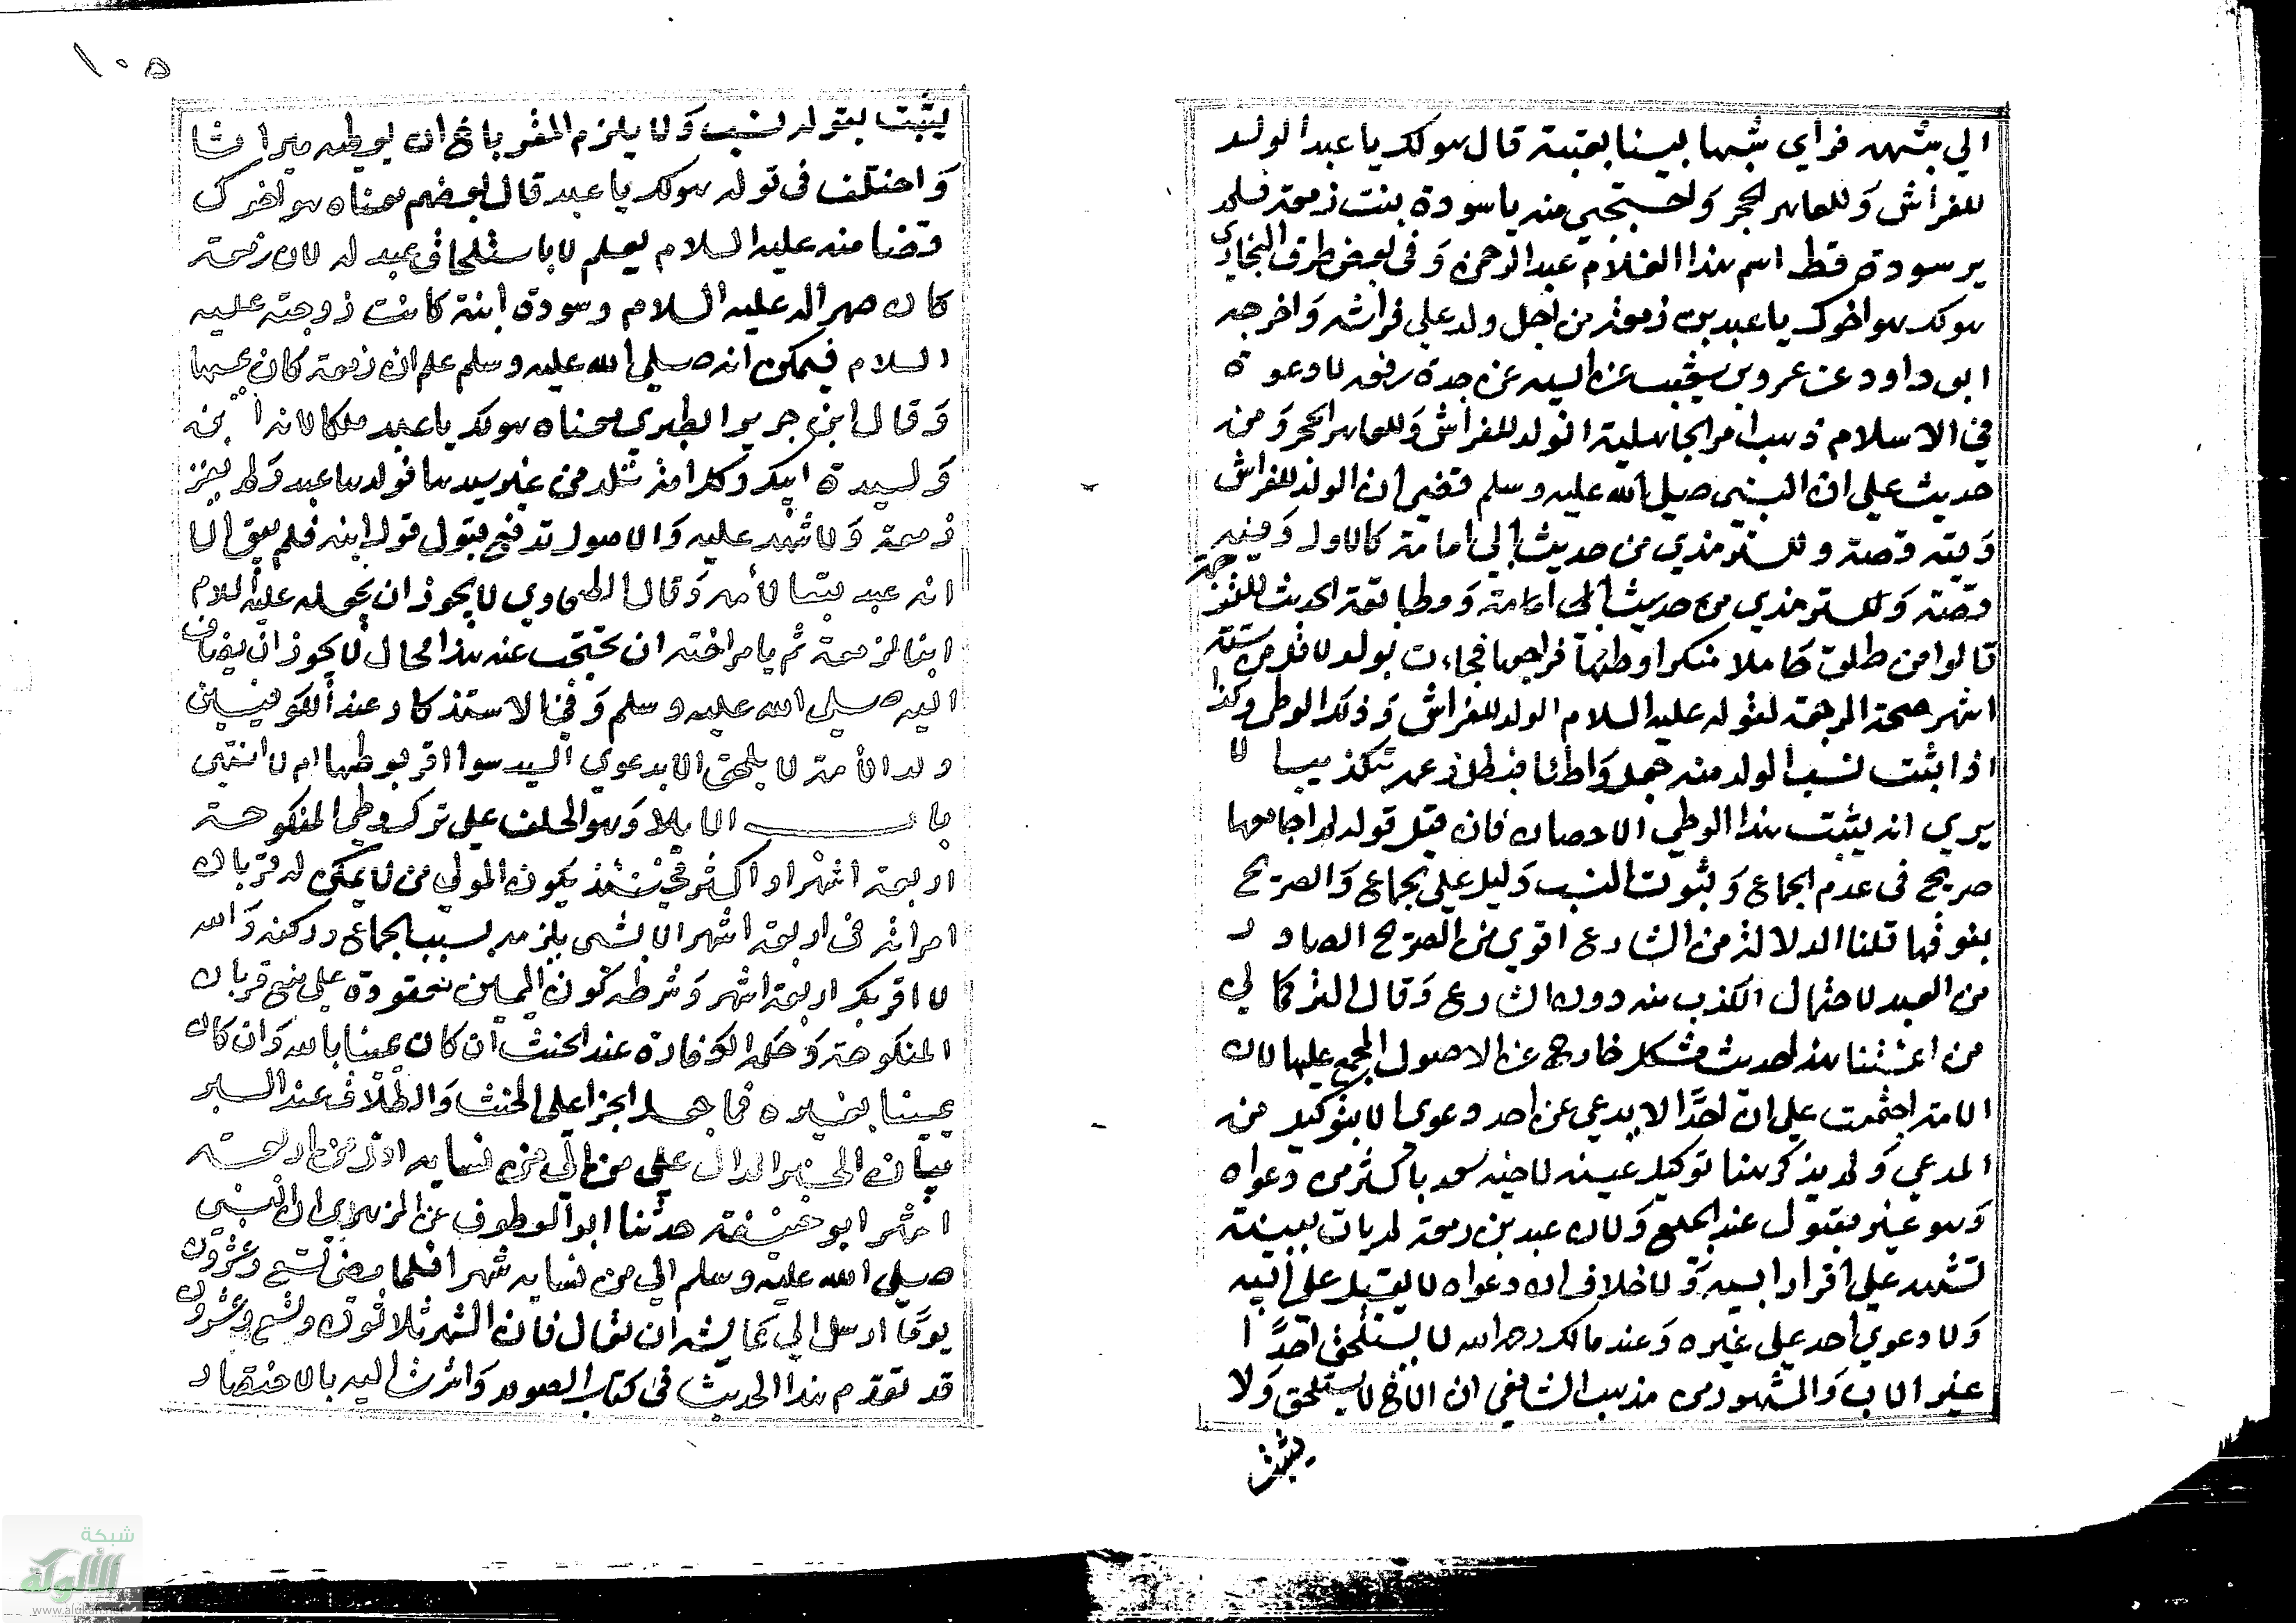 الي شبهه فراي شبها بينا بعتبة قال هو لك يا عبد الولد
للفراش وللعاهر الحجر واحتجبي منه يا سودة بنت زمعة فلم
ير سودة قط اسم هذا الغلام عبد الرحمن وفي بعض طرق البخاري
هو لك هو اخوك يا عبد بن زمعة من اجل ولد علي فراشه واخرجه
ابو داود عن عمرو بن شعيب عن ابيه عن جده رفعه لا دعوة
في الاسلام ذهب امر الجاهلية الولد للفراش وللعاهر الحجر ومن
حديث علي ان النبي صلي الله عليه وسلم قضي ان الولد للفراش
وفيه قصة وللترمذي من حديث ابي امامة كالاول وفيه
قصة وللترمذي من حديث ابي امامة ومطابقة الحديث للترجمة
قالوا من طلق حاملا منكرا وطئها فراجعها فجاءت بولد لاقل من ستة
اشهر صحة الرجعة لقوله عليه السلام الولد للفراش وذلك الوطي وكذا
اذا ثبت نسب الولد منه جعل واطئا فبطل زعمه بتكذيب لا
يري انه يثبت هذا الوطي الاحصان فان قيل قوله لم اجامعها
صريح في عدم الجماع وثبوت النسب دليل علي الجماع والصريح
يفوقها قلنا الدلالة من الشارع اقوي من الصريح الصادر
من العبد لاحتمال الكذب منه دون الشارع وقال
من ائمتنا هذا حديث مشكل خارج عن الاصول المجمع عليها لان
الامة اجتمعت علي ان احدا لا يدعي عن احد دعوي الا بتوكيل من
المدعي ولم يذكر هنا توكيل عيينه لاخيه سعد باكثر من دعواه
وهو غير مقبول عند الجميع ولان عبد بن زمعة لم يات ببينة
تشهد علي اقرار ابيه ولا خلاف ان دعواه لا يقبل علي ابيه
ولا دعوي احد علي غيره وعند مالك رحمه الله لا يستلحق احدا
غير الاب والمشهور من مذهب الشافعي ان الاخ لا يستلحق ولا
يثبت
١٠٥
يثبت بقوله نسب ولا يلزم المقر باخ ان يوطيه ميراثا
واختلف في قوله هو لك يا عبد قال بعضهم معناه هو اخوك
قضا منه عليه السلام بعلم لا باستلحاق عبد له لان زمعة
كان صهرا له عليه السلام وسودة ابنة كانت زوجته عليه
السلام فيمكن انه صلي الله عليه وسلم علم ان زمعة كان يمسها
وقال ابن جرير الطبري معناه هو لك يا عبد ملكا لانه ابن
وليدة ابيك وكل امة تلد من غير سيدها فولدها عبد ولم يقر
زمعة ولا شهد عليه والاصول تدفع قبول قول ابنه فلم يبق الا
انه عبد تبعا لامه وقال الطحاوي لا يجوز ان يجعله عليه السلام
ابنا لزمعة ثم يامر اخته ان تحتجب عنه هذا محال لا يجوز ان يضاف
اليه صلي الله عليه وسلم وفي الاستذكار عند الكوفيين
ولد الامة لا يلحق الا بدعوي السيد سوا اقر بوطيها ام لا انتهي
باب الايلا وهو الحلف علي ترك وطي المنكوحة
اربعة اشهر او اكثر فحينئذ يكون المولي من لا يمكن له قربان
امراته في اربعة اشهر الا بشي يلزمه بسبب الجماع وركنه والله
لا اقربك اربعة اشهر وشرطه كون اليمين معقودة علي منع قربان
المنكوحة وحكمه الكفارة عند الحنث ان كان يمينا بالله وان كان
يمينا بغيره فما جعل الجزا علي الحنث والطلاق عند البر
بيان الخبر الدال علي من الي من نسايه اقل من اربعة
اشهر ابو حنيفة حدثنا ابو العطوف عن الزهري ان النبي
صلي الله عليه وسلم الي من نسايه شهرا فلما مضي تسع وعشرون
يوما ارسل الي عايشة ان تعال فان الشهر ثلاثون وتسع وعشرون
قد تقدم هذا الحديث في كتاب الصوم واشرت اليه بالاختصار
شبكة
الألوكة
www.alukah.net